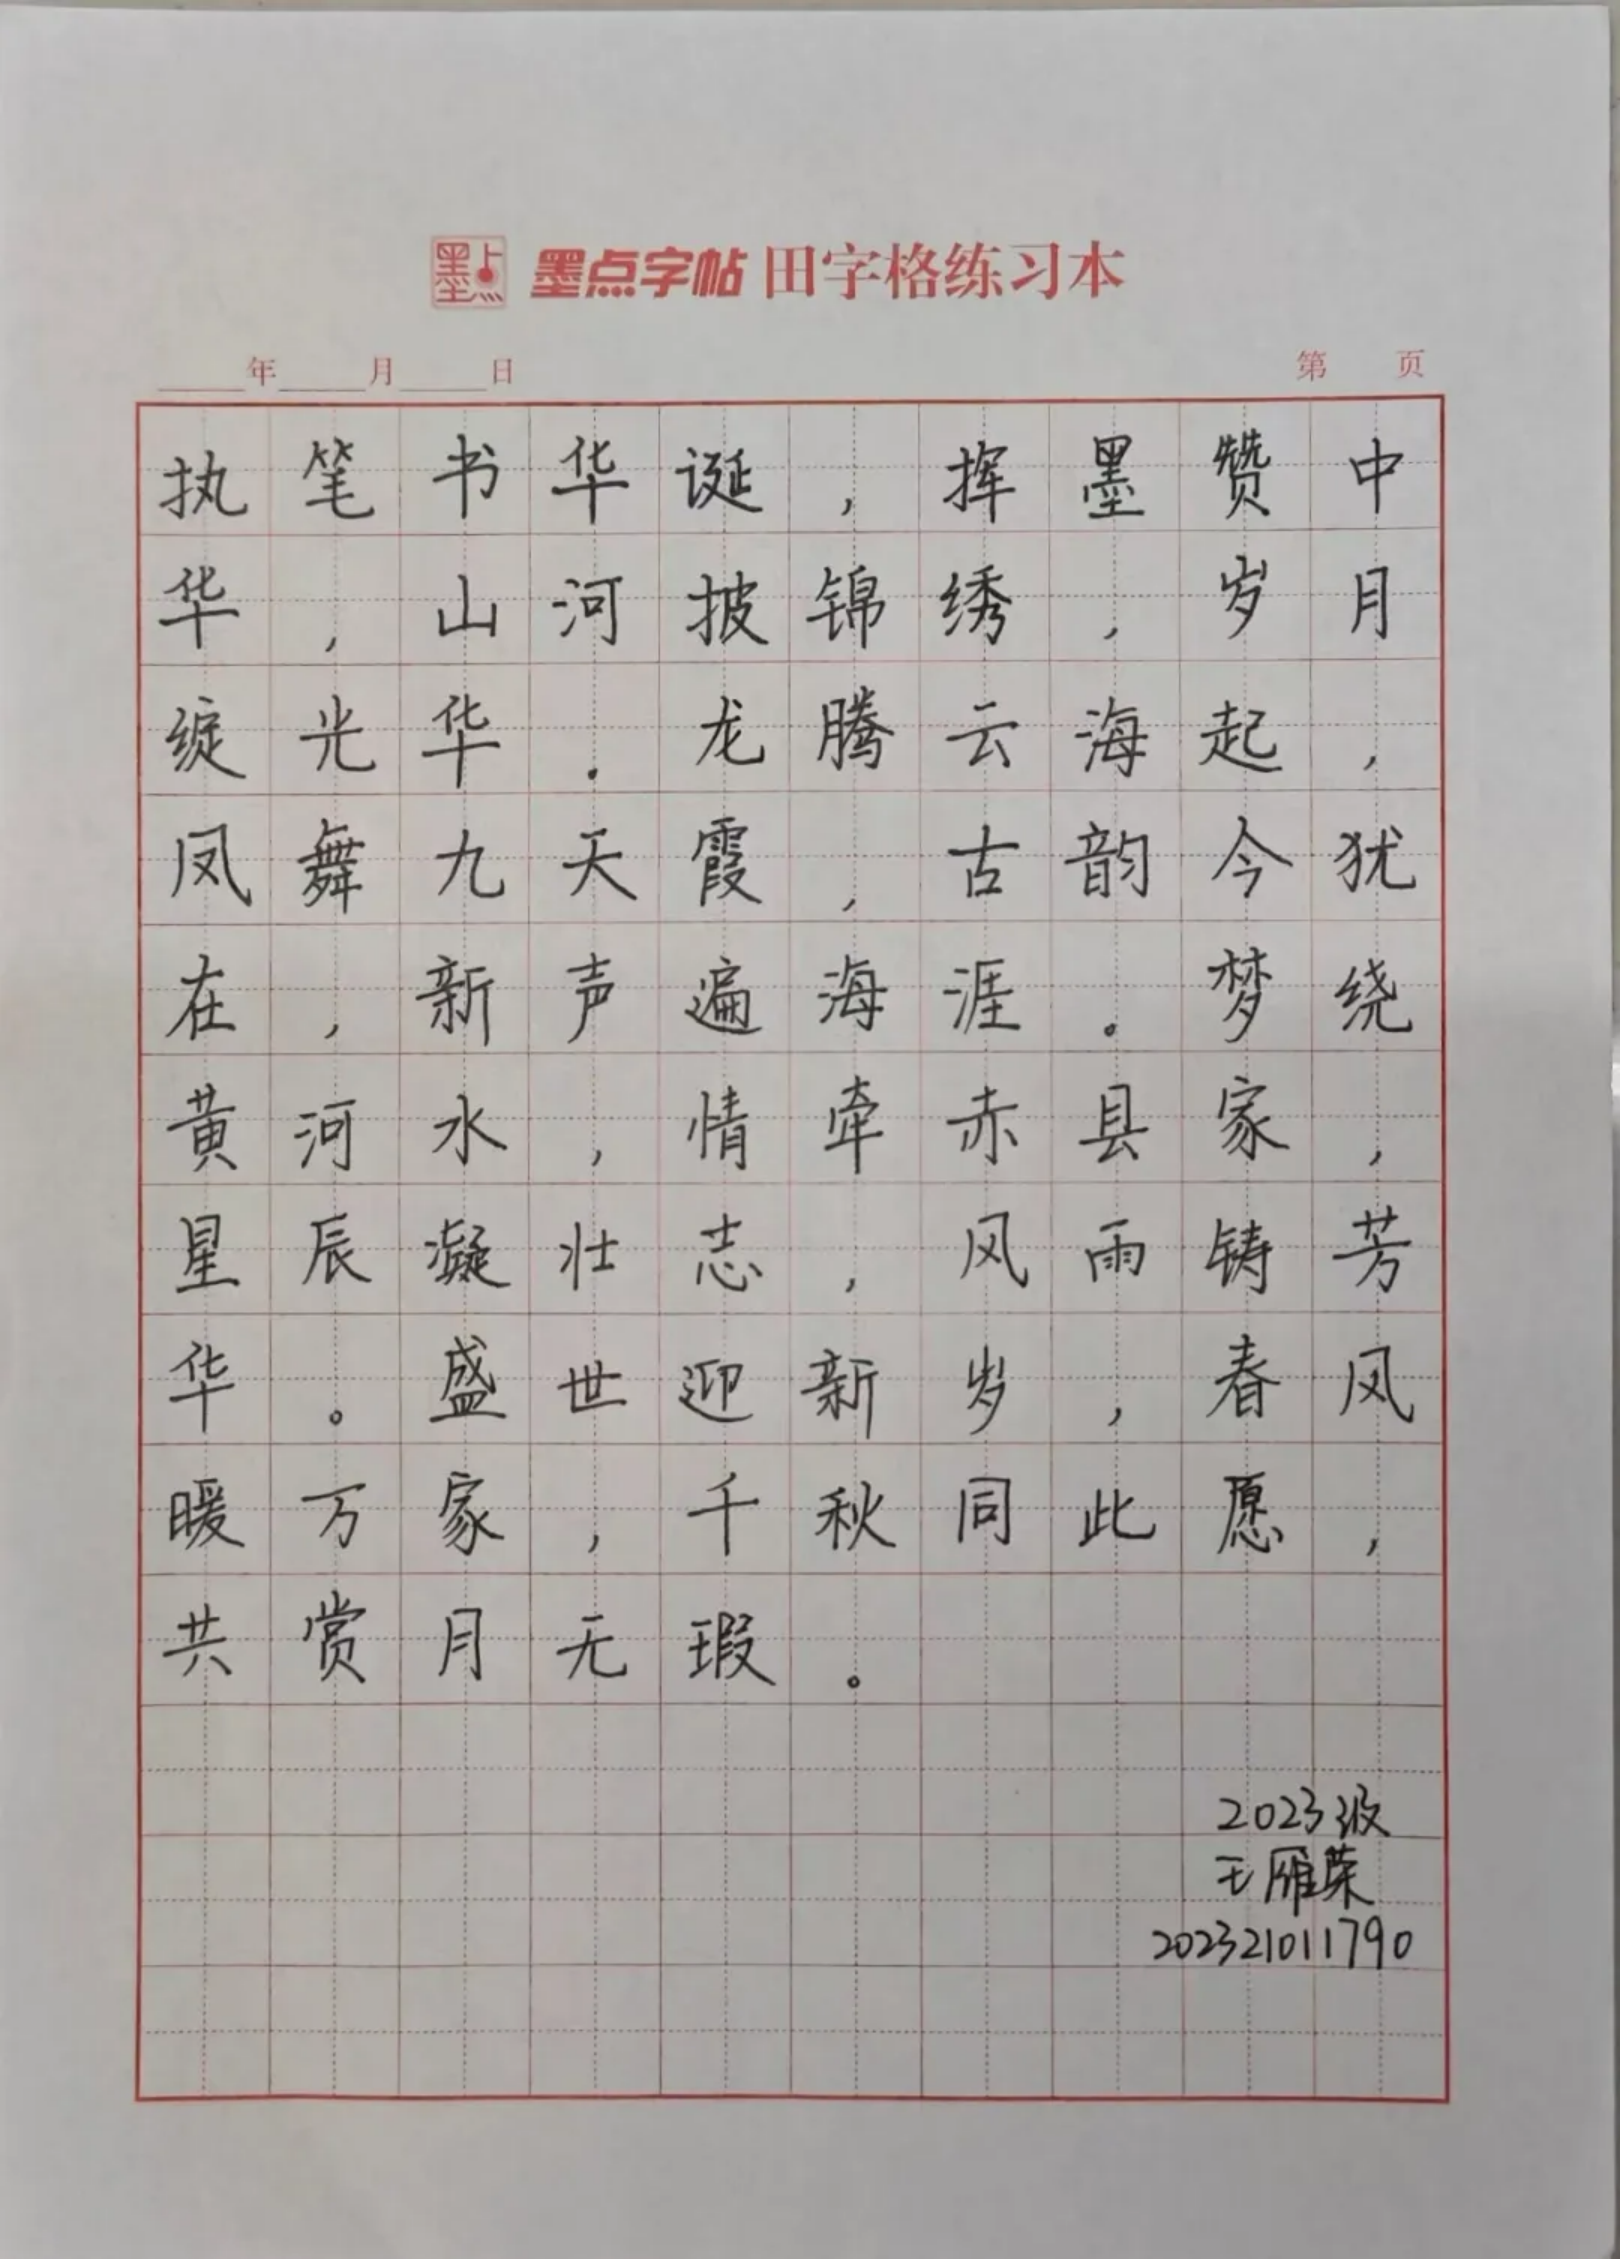 墨点 墨点字帖 田字格练习本
____年____月____日 第 页
执笔书华诞，挥墨赞中
华，山河披锦绣，岁月
绽光华．龙腾云海起，
凤舞九天霞，古韵今犹
在，新声遍海涯。梦绕
黄河水，情牵赤县家，
星辰凝壮志，风雨铸芳
华。盛世迎新岁，春风
暖万家，千秋同此愿，
共赏月无瑕。
2023级
王雁荣
202321011790